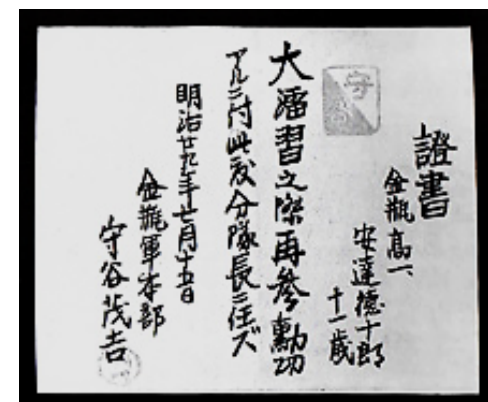 證書
金瓶高一、
安達徳十郎
十一歳
守
大演習之際再參勳功
アルニ付此段分隊長ニ任ズ
明治廿九年七月十五日
金瓶軍本部
守谷茂吉